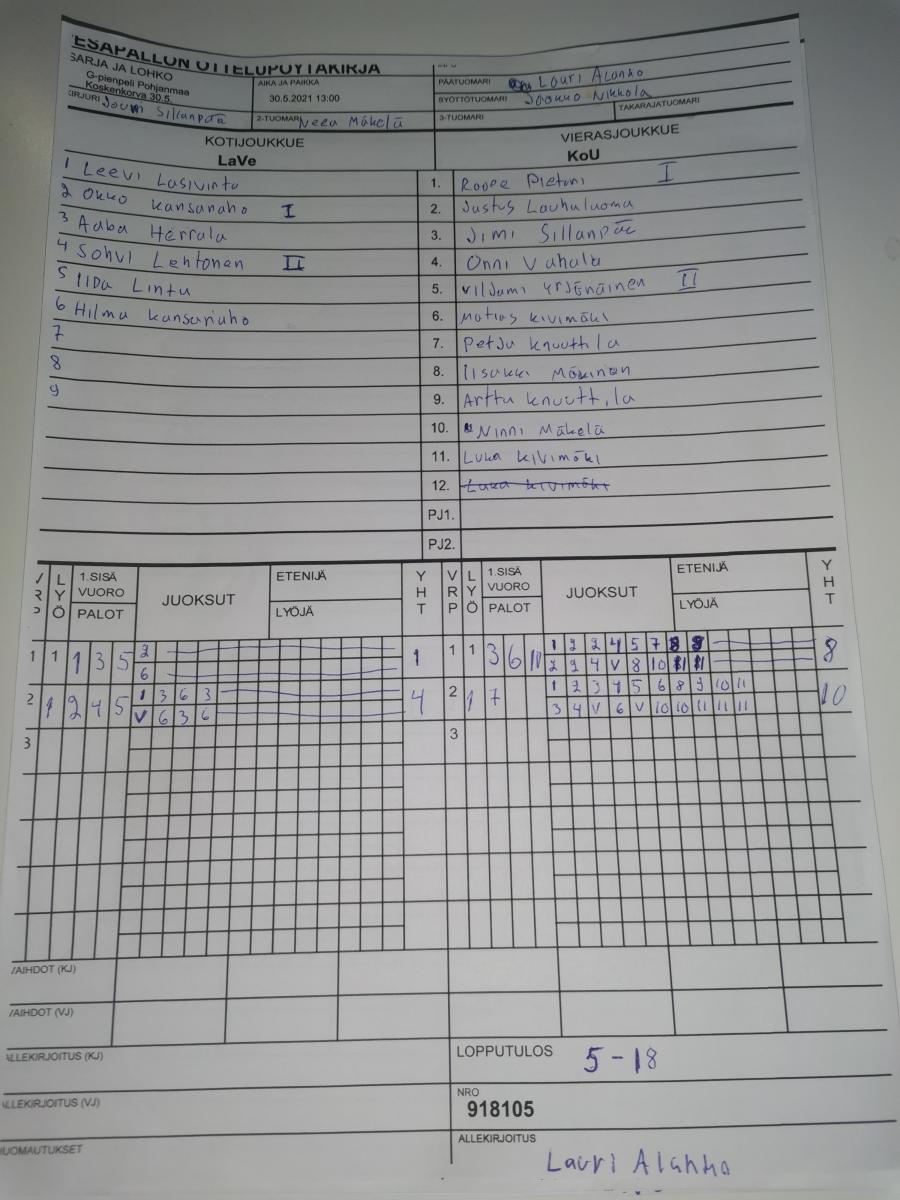 PESÄPALLON OTTELUPÖYTÄKIRJA
SARJA JA LOHKO
G-pienpeli Pohjanmaa
Koskenkorva 30.5.
KIRJURI Joumi Sillanpää
AIKA JA PAIKKA
30.5.2021 13:00
2-TUOMARI Neea Mäkelä
PÄÄTUOMARI Lauri Alanko
SYÖTTÖTUOMARI Jaakko Nikkola
3-TUOMARI
TAKARAJATUOMARI
KOTIJOUKKUE
LaVe
VIERASJOUKKUE
KoU
1 Leevi Lasivirta
2 Okko Kansanaho I
3 Aaba Herrala
4 Sohvi Lehtonen II
5 Iida Lintu
6 Hilma Kansanaho
7
8
9
1. Roope Pietoni I
2. Justus Lauhaluoma
3. Jimi Sillanpää
4. Onni Vahala
5. Viljami Yrjänäinen II
6. Matias Kivimäki
7. Petja Knuuttila
8. Iisakki Mäkinen
9. Arttu Knuuttila
10. Ninni Mäkelä
11. Luka Kivimäki
12. Luka Kivimäki
PJ1.
PJ2.
VRP LYÖ 1.SISÄ VUORO PALOT JUOKSUT ETENIJÄ LYÖJÄ YHT
VRP LYÖ 1.SISÄ VUORO PALOT JUOKSUT ETENIJÄ LYÖJÄ YHT
1 1 1 3 5 2 1
6
1 1 3 6 10 1 2 2 4 5 7 8 8 8
2 9 4 V 8 10 11 11
2 1 2 4 5 1 3 6 3 4
V 6 3 6
2 1 7 1 2 3 4 5 6 8 9 10 11 10
3 4 V 6 V 10 10 11 11 11
3
3
VAIHDOT (KJ)
VAIHDOT (VJ)
ALLEKIRJOITUS (KJ)
ALLEKIRJOITUS (VJ)
HUOMAUTUKSET
LOPPUTULOS 5-18
NRO
918105
ALLEKIRJOITUS
Lauri Alanko